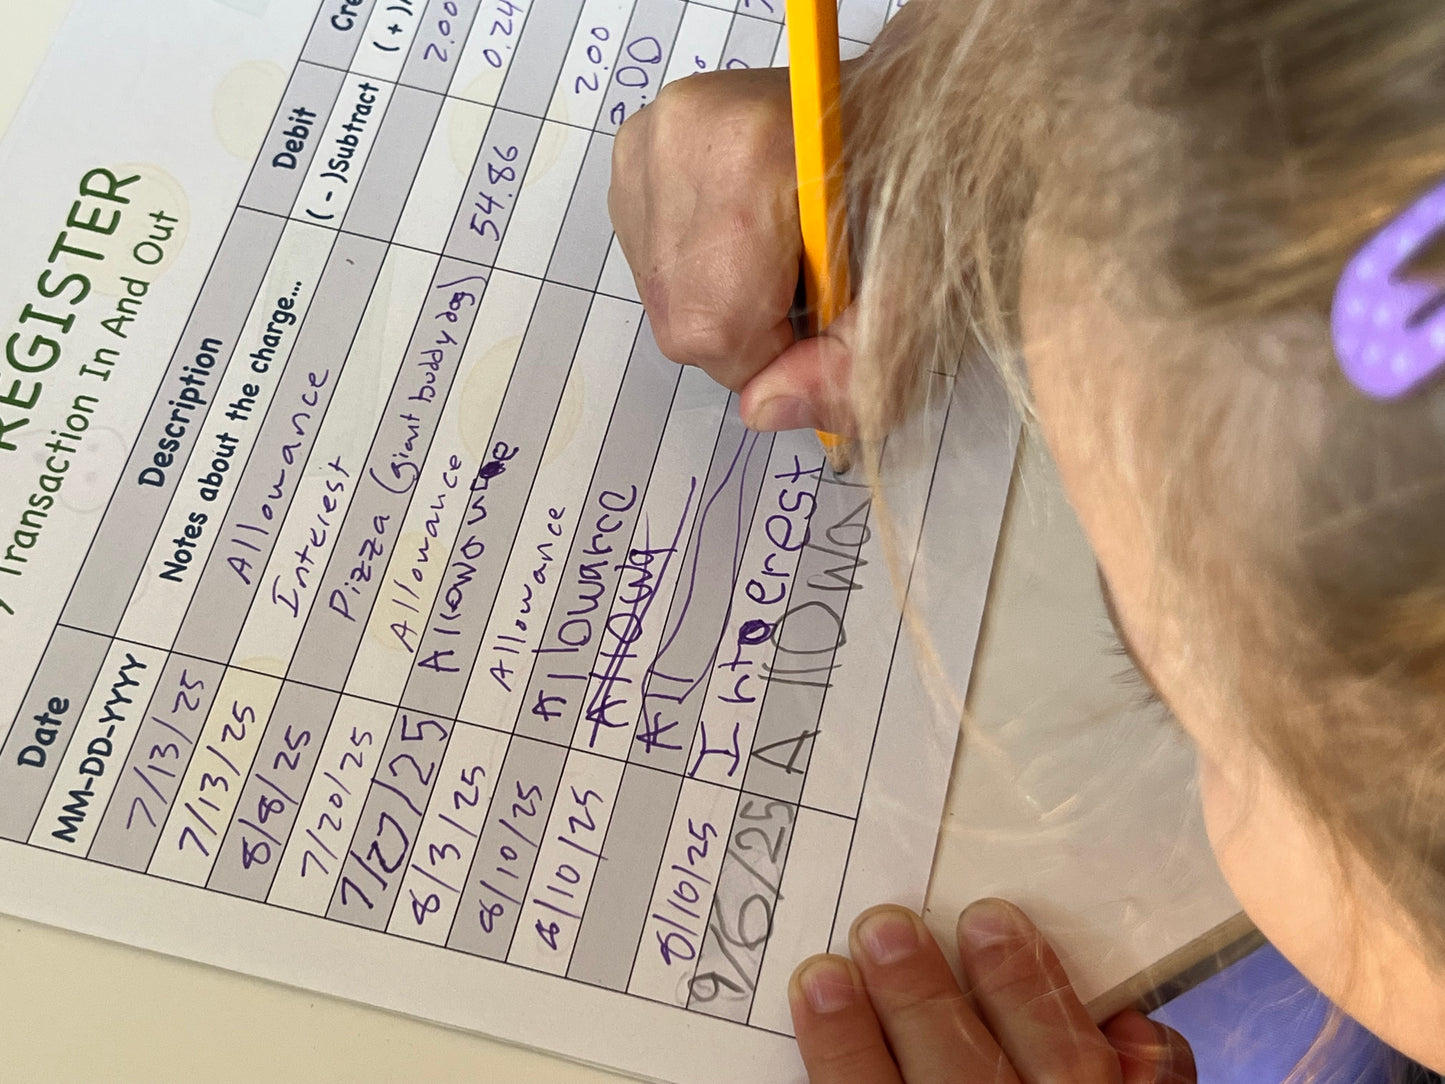 REGISTER
Transaction In And Out
Date Description Debit
MM-DD-YYYY Notes about the charge... (-)Subtract (+)
7/13/25 Allowance 2.00
7/13/25 Interest 0.24
8/8/25 Pizza (Giant buddy dog) 54.86
7/20/25 Allowance 2.00
7/27/25 Allowance
8/3/25 Allowance
8/10/25 Allowance
8/10/25 Allowa
All
8/10/25 Interest
9/6/25 Allowa